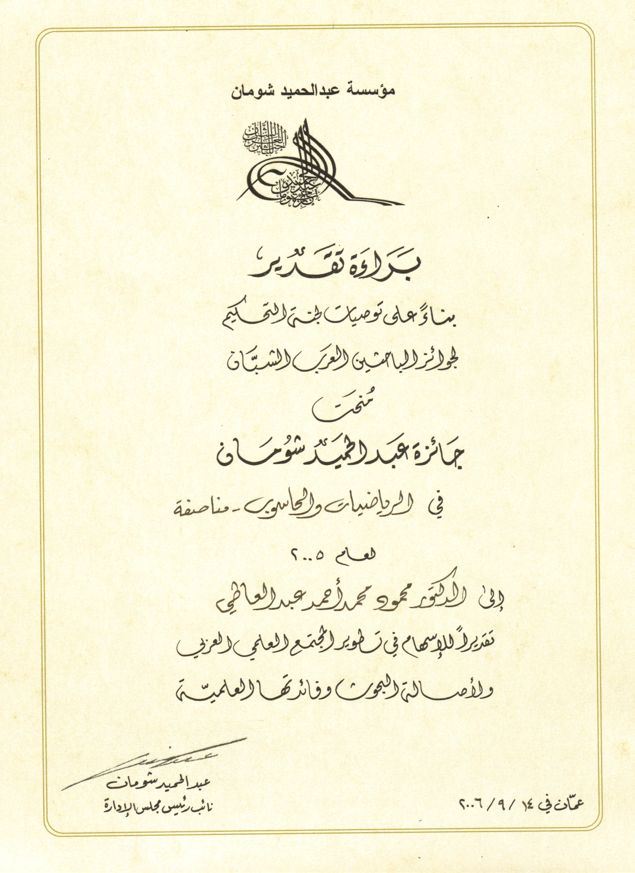 مؤسسة عبدالحميد شومان
بَرَاءَة تقَدْير
بناءً على توصيات لجنة التحكيم
لجوائز الباحثين العَرَب الشبَّان
مُنحت
جَائزة عَبد الحميَد شُومَان
في الرياضيات والحاسوب - مناصفة
لعام ٢٠٠٥
إلى الدكتور محمود محمد أحمد عبدالعاطي
تقديراً للإسهام في تطوير المجتمع العلمي العربي
ولأصالة البحوث وفائدتها العلميّة
عبدالحميد شومان
نائب رئيس مجلس الإدارة
عمّان في ١٤ / ٩ / ٢٠٠٦